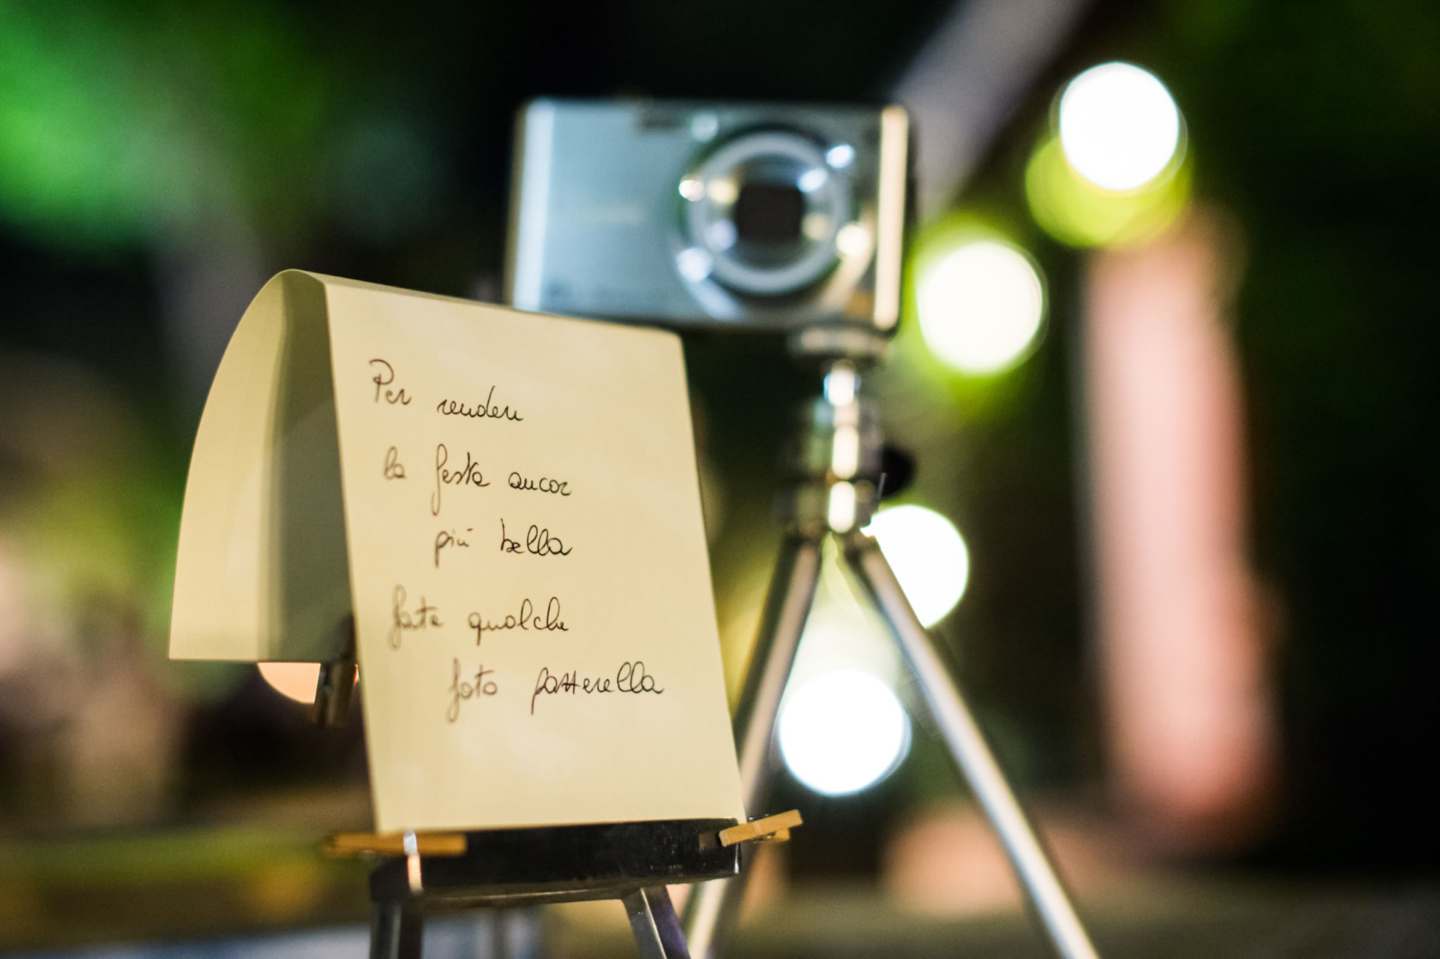 Per rendere
la festa ancor
più bella
fate qualche
foto pazzerella